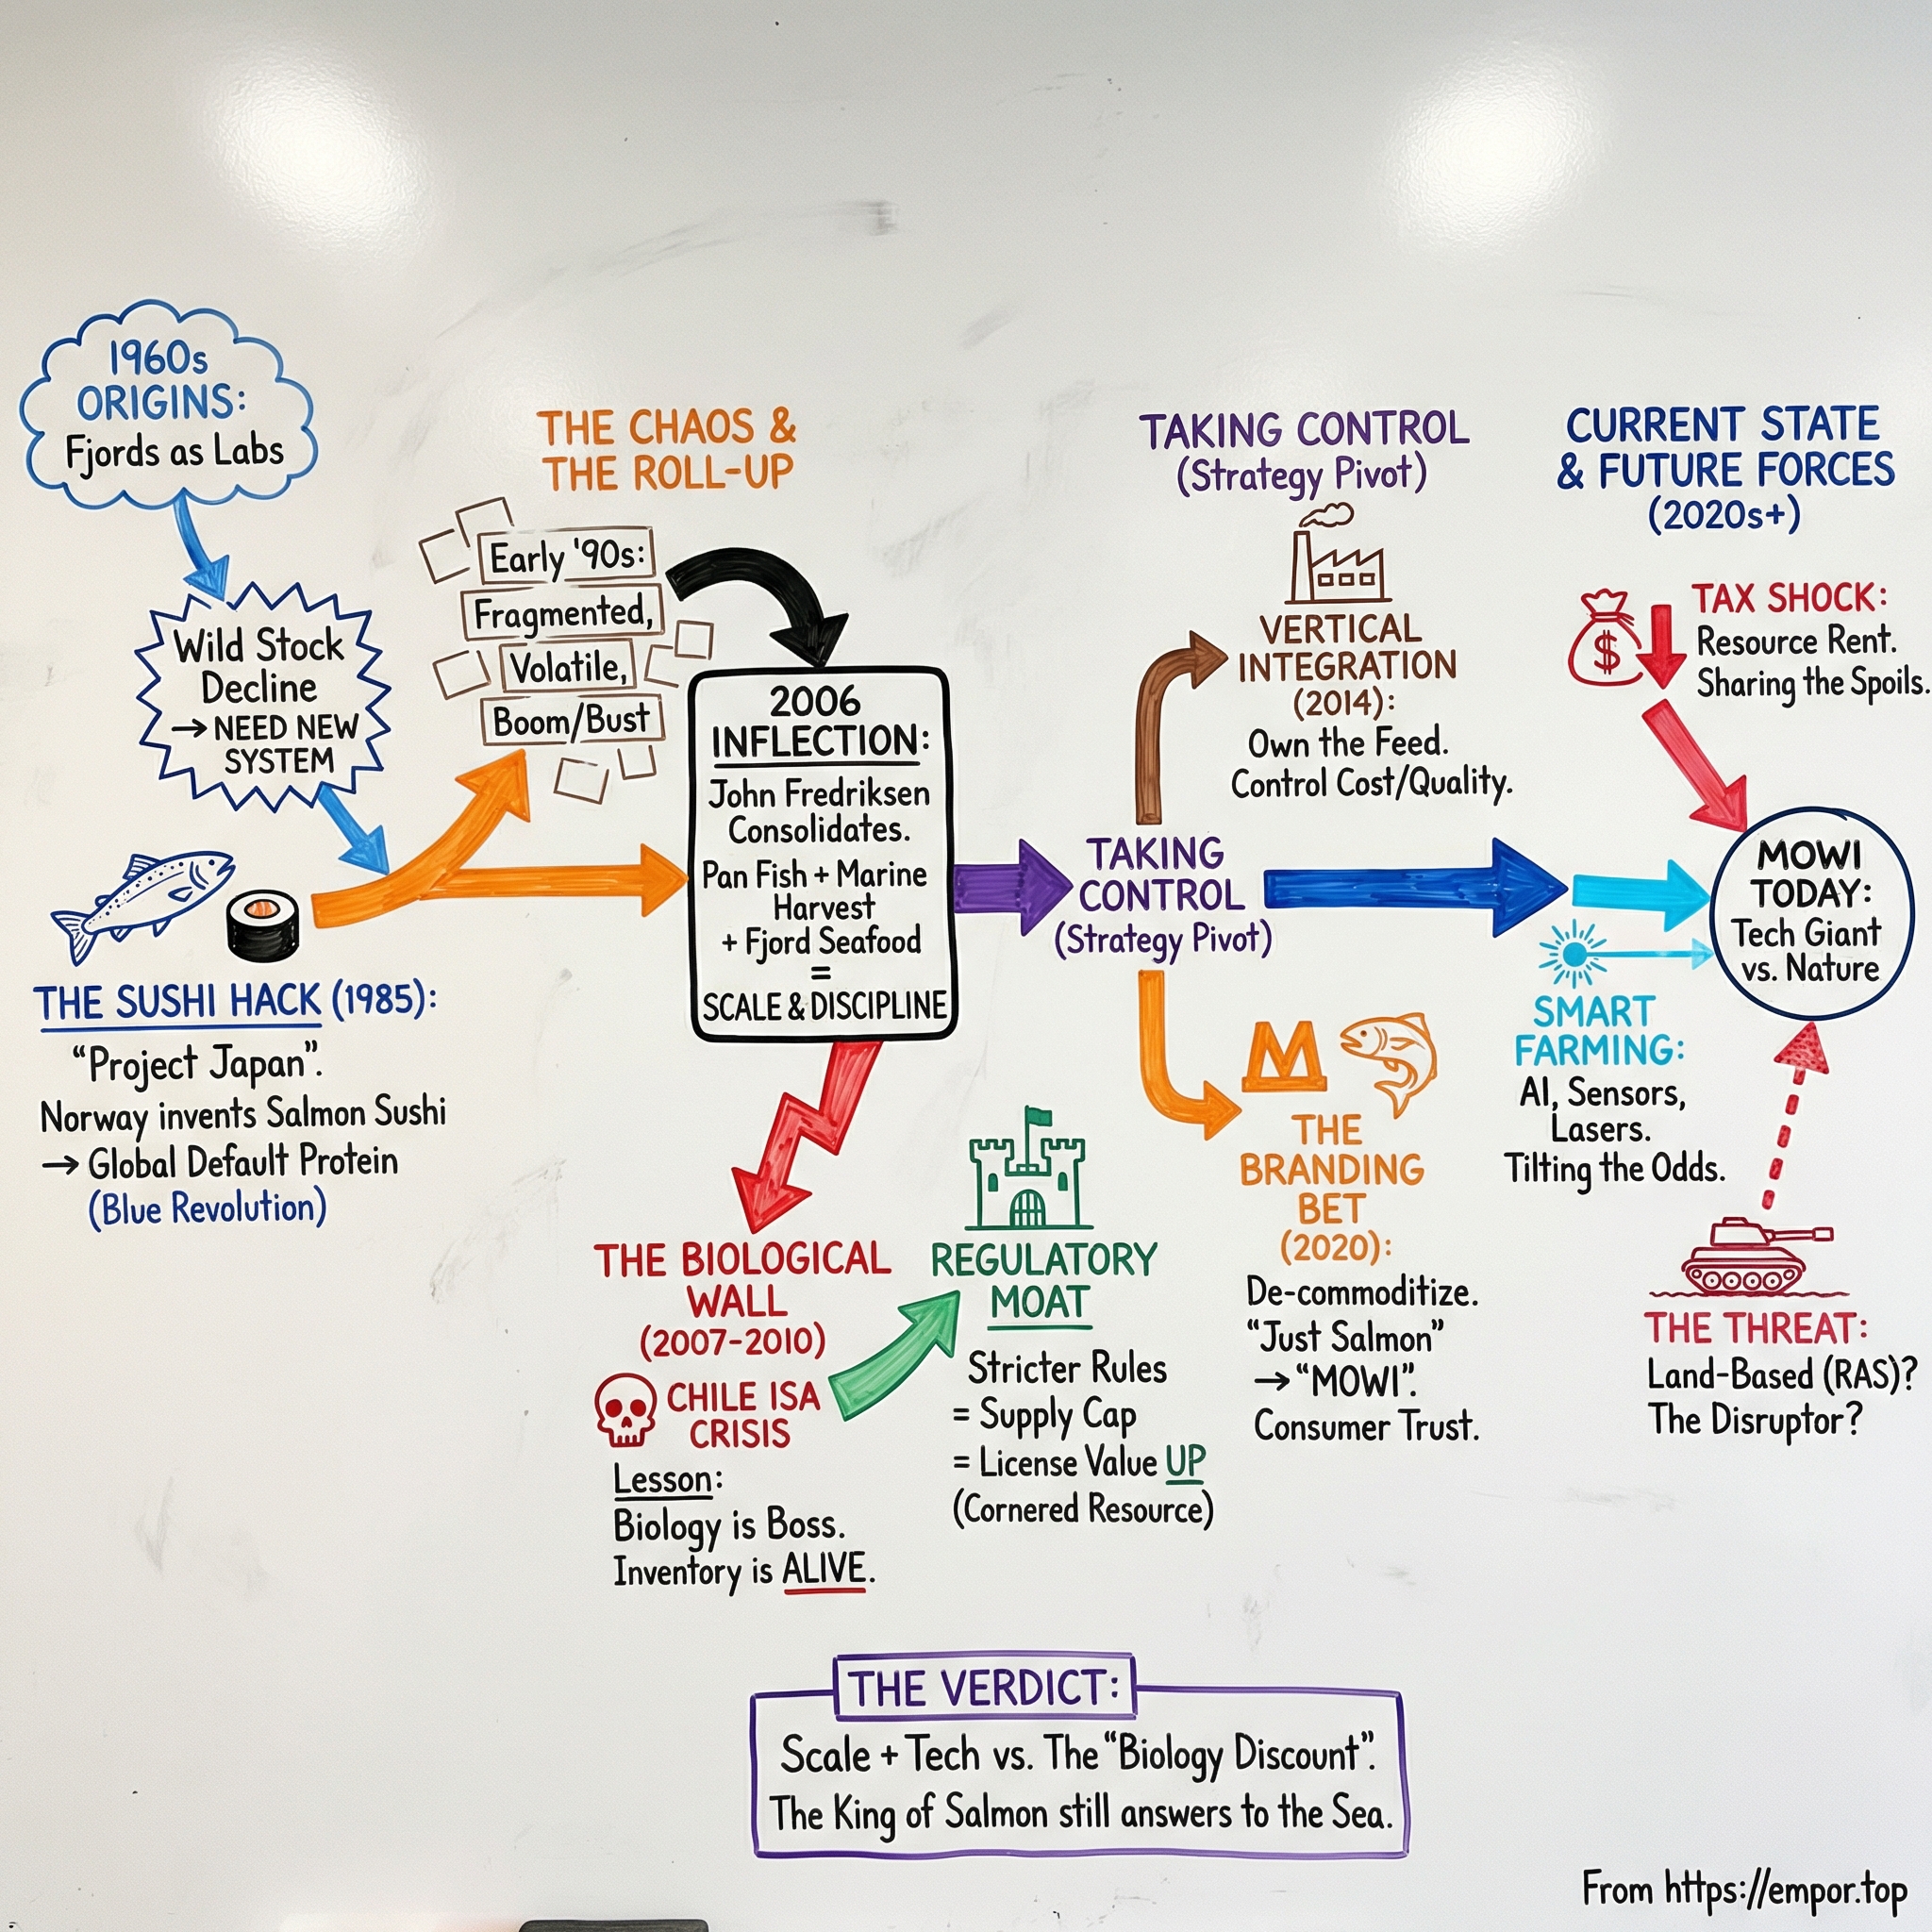 1960s
ORIGINS:
Fjords as Labs
Wild Stock
Decline
→ NEED NEW
SYSTEM
THE SUSHI HACK (1985):
“Project Japan”.
Norway invents Salmon Sushi
→ Global Default Protein
(Blue Revolution)
THE CHAOS &
THE ROLL-UP
Early '90s:
Fragmented,
Volatile,
Boom/Bust
2006
INFLECTION:
John Fredriksen
Consolidates.
Pan Fish + Marine
Harvest
+ Fjord Seafood
=
SCALE & DISCIPLINE
THE BIOLOGICAL
WALL
(2007-2010)
CHILE ISA
CRISIS
Lesson:
Biology is Boss.
Inventory is ALIVE.
REGULATORY
MOAT
Stricter Rules
= Supply Cap
= License Value UP
(Cornered Resource)
TAKING CONTROL
(Strategy Pivot)
VERTICAL
INTEGRATION
(2014):
Own the Feed.
Control Cost/Quality.
TAKING
CONTROL
(Strategy Pivot)
M
THE
BRANDING
BET
(2020):
De-commoditize.
“Just Salmon”
→ “MOWI”.
Consumer Trust.
CURRENT STATE
& FUTURE FORCES
(2020s+)
$
TAX SHOCK:
Resource Rent.
Sharing the Spoils.
MOWI
TODAY:
Tech Giant
vs. Nature
SMART
FARMING:
AI, Sensors,
Lasers.
Tilting the Odds.
THE THREAT:
Land-Based (RAS)?
The Disruptor?
THE VERDICT:
Scale + Tech vs. The “Biology Discount”.
The King of Salmon still answers to the Sea.
From https://empor.top